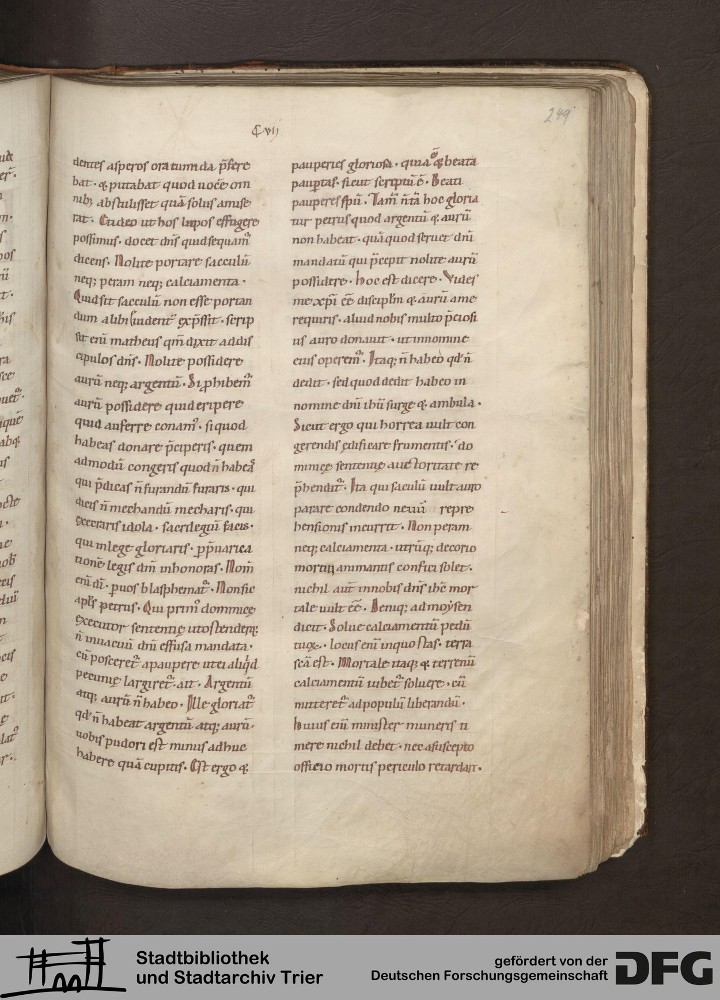 C vij
249
dentes asperos ora tumida p̄fere
bat · & putabat quod noc̄e om
nib; abstulisset quā solus amise
rat · Credeo ut hos lupos effugere
possimus · docet dn̄s quid sequam̄
dicens · Nolite portare sacculū
neq; peram neq; calciamenta ·
Quid sit sacculū non esse portan
dum alibi euident᷒ exp̄ssit · scrip
sit enī matheus qm̄ dixit ad dis
cipulos dn̄s · Nolite possidere
aurū neq; argentū · Si phibem᷒
aurū possidere quid eripere
quid auferre conam᷒ · si quod
habeas donare p̄ciperis · quem
admodū congeris quod n̄ habeas
qui p̄dicas n̄ furandū furaris · qui
dicis n̄ mechandū mecharis · qui
execraris idola · sacrilegiū facis ·
qui in lege gloriaris · p̄uarica
tionē legis dm̄ inhonoras · Nom̄
eni dī · p uos blasphemat᷒ · Non sic
apl's petrus · Qui prim᷒ dominicę
executor sententię ut ostenderet
n̄ in uacuū dn̄i effusa mandata ·
cū posceret᷒ a paupere ut ei aliq̄d
pecunię largiret᷒ · ait · Argentū
atq; aurū n̄ habeo · Ille gloriat᷒
qd̄ n̄ habeat argentū atq; aurū ·
uobis pudori est minus adhuc
habere quā cupitis · Est ergo &
pauperies gloriosa · quia & beata
paup̄tas · sicut scriptū ē · Beati
pauperes spū · Tam̄ n̄ tā hoc gloria
tur petrus quod argentū & aurū
non habeat · quā quod seruet dn̄i
mandatū qui p̄cepit nolite aurū
possidere · hoc est dicere · Vides
me xp̄i ēē discipl̄m & aurū a me
requiris · aliud nobis multo p̄ciosi
us auro donauit · ut in nomine
eius operem᷒ · Itaq; n̄ habeo qd̄ n̄
dedit · sed quod dedit habeo in
nomine dn̄i ihū surge & ambula ·
Sicut ergo qui horrea uult con
gerendis edificare frumentis · do
minicę sententię auctoritate re
p̄hendit᷒ · Ita qui saculū uult auro
parare condendo neuū repre
hensionis incurrit · Non peram
neq; calciamenta · utrūq; de corio
mortui animantis confici solet ·
nichil aut̄ in nobis dn̄s ihc̄ mor
tale uult ēē · Deniq; ad moysen
dicit · Solue calciamentū pedū
tuoꝝ · locus enī in quo stas · terra
sc̄a est · Mortale itaq; & terrenū
calciamentū iubet᷒ soluere · cū
mitteret᷒ ad populū liberandū ·
huius enī minister muneris ti
mere nichil debet · nec a suscepto
officio mortis periculo retardari ·
Stadtbibliothek
und Stadtarchiv Trier
gefördert von der
Deutschen Forschungsgemeinschaft
DFG